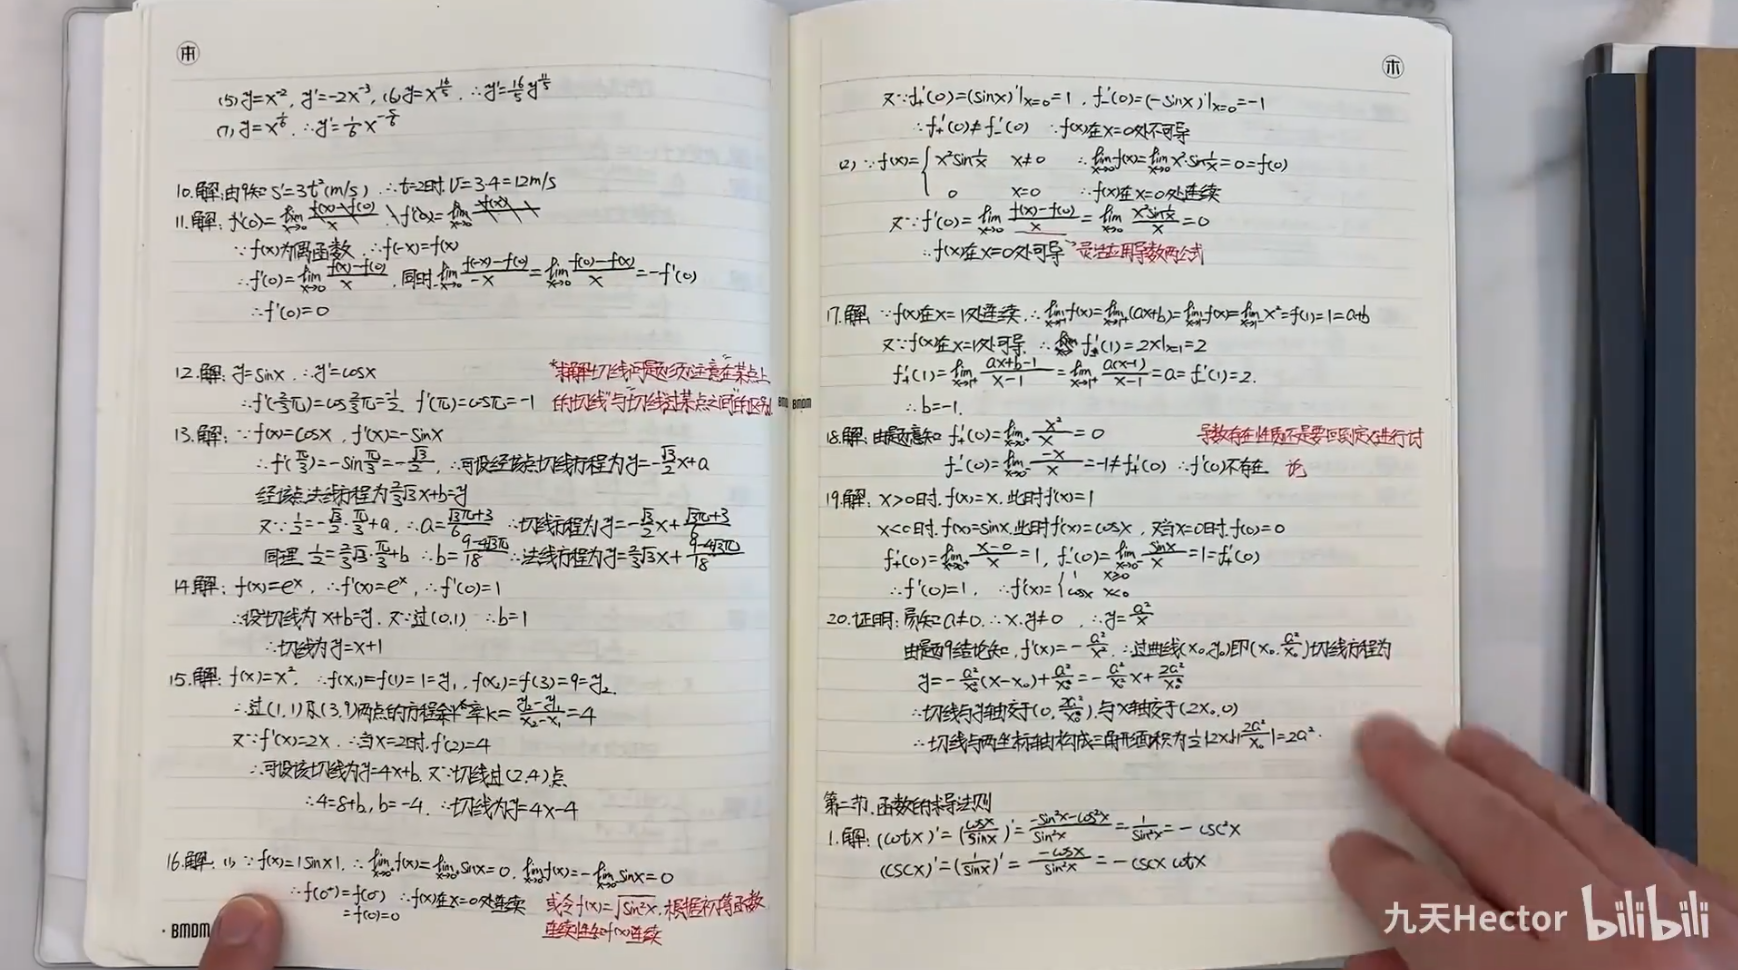 (5) y=x⁻², y'=-2x⁻³, (6) y=x^{16/5}, ∴y'=16/5 y^{11/5}
(7) y=x^{1/6}. ∴y'=1/6 x^{-5/6}
10.解:由9知 s'=3t²(m/s). ∴t=2时. v=3·4=12m/s
11.解:
∵f(x)为偶函数 ∴f(-x)=f(x)
∴f'(0)=lim_{x→0} (f(x)-f(0))/x . 同时 lim_{x→0} (f(-x)-f(0))/-x = lim_{x→0} (f(0)-f(x))/x = -f'(0)
∴f'(0)=0
12.解: y=sinx. ∴y'=cosx
∴f'(2/3π)=cos2/3π=-1/2. f'(π)=cosπ=-1
"求解切线问题必须注意"在某点上
的切线"与"切线过某点之间"的区别
13.解: ∵f(x)=cosx, f'(x)=-sinx
∴f'(π/3)=-sinπ/3=-√3/2, ∴可设经该点切线方程为y=-√3/2x+a
经该点法线方程为2/3√3x+b=y
又∵1/2=-√3/2·π/3+a, ∴a=(√3π+3)/6 ∴切线方程为y=-√3/2x+(√3π+3)/6
同理 1/2=2/3√3·π/3+b ∴b=(9-4√3π)/18 ∴法线方程为y=2/3√3x+(9-4√3π)/18
14.解: f(x)=eˣ, ∴f'(x)=eˣ, ∴f'(0)=1
∴设切线为x+b=y. 又∵过(0,1) ∴b=1
∴切线为y=x+1
15.解: f(x)=x², ∴f(x₁)=f(1)=1=y₁, f(x₂)=f(3)=9=y₂.
∴过(1,1)及(3,9)两点的方程斜率k=(y₂-y₁)/(x₂-x₁)=4
又∵f'(x)=2x. ∴当x=2时. f'(2)=4
∴可设该切线为y=4x+b. 又∵切线过(2,4)点
∴4=8+b, b=-4. ∴切线为y=4x-4
16.解: (1) ∵f(x)=|sinx|. ∴lim_{x→0⁺}f(x)=lim_{x→0⁺}sinx=0. lim_{x→0⁻}f(x)=-lim_{x→0⁻}sinx=0
∴f(0⁺)=f(0⁻) ∴f(x)在x=0处连续
=f(0)=0
或令f(x)=√sin²x. 根据初等函数
连续性知f(x)连续
BMDM
又∵f₊'(0)=(sinx)'|x=0=1, f₋'(0)=(-sinx)'|x=0=-1
∴f₊'(0)≠f₋'(0) ∴f(x)在x=0处不可导
(2) ∵f(x)={ x²sin1/x x≠0 ∴lim_{x→0}f(x)=lim_{x→0}x²·sin1/x=0=f(0)
0 x=0 ∴f(x)在x=0处连续
又∵f'(0)=lim_{x→0} (f(x)-f(0))/x = lim_{x→0} (x²sin1/x)/x =0
∴f(x)在x=0处可导 灵活应用导数两公式
17.解: ∵f(x)在x=1处连续. ∴lim_{x→1⁺}f(x)=lim_{x→1⁺}(ax+b)=lim_{x→1⁻}f(x)=lim_{x→1⁻}x²=f(1)=1=a+b
又∵f(x)在x=1处可导. ∴f₋'(1)=2x|x=1=2
f₊'(1)=lim_{x→1⁺} (ax+b-1)/(x-1) = lim_{x→1⁺} a(x-1)/(x-1) =a=f₋'(1)=2.
∴b=-1.
BMDM
18.解:由题意知 f₊'(0)=lim_{x→0⁺} x²/x =0
f₋'(0)=lim_{x→0⁻} -x/x =-1≠f₊'(0) ∴f'(0)不存在
导数存在性质不是要回到定义进行讨
论
19.解: x>0时. f(x)=x. 此时f'(x)=1
x<0时. f(x)=sinx. 此时f'(x)=cosx, 又当x=0时. f(0)=0
f₊'(0)=lim_{x→0⁺} (x-0)/x =1, f₋'(0)=lim_{x→0⁻} sinx/x =1=f₊'(0)
∴f'(0)=1. ∴f'(x)={ 1 x≥0
cosx x<0
20.证明: 易知a≠0. ∴x.y≠0 ∴y=a²/x
由题9结论知, f'(x)=-a²/x². ∴过曲线(x₀,y₀)即(x₀,a²/x₀)切线方程为
y=-a²/x₀²(x-x₀)+a²/x₀=-a²/x₀²x+2a²/x₀
∴切线与y轴交于(0,2a²/x₀), 与x轴交于(2x₀,0)
∴切线与两坐标轴构成三角形面积为1/2|2x₀||2a²/x₀|=2a².
第二节. 函数的求导法则
1.解: (cotx)'=(cosx/sinx)'=(-sin²x-cos²x)/sin²x=-1/sin²x=-csc²x
(cscx)'=(1/sinx)'=-cosx/sin²x=-cscx cotx
九天Hector bilibili